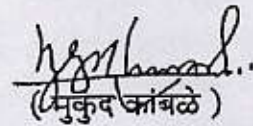 (मुकुंद कांबळे)